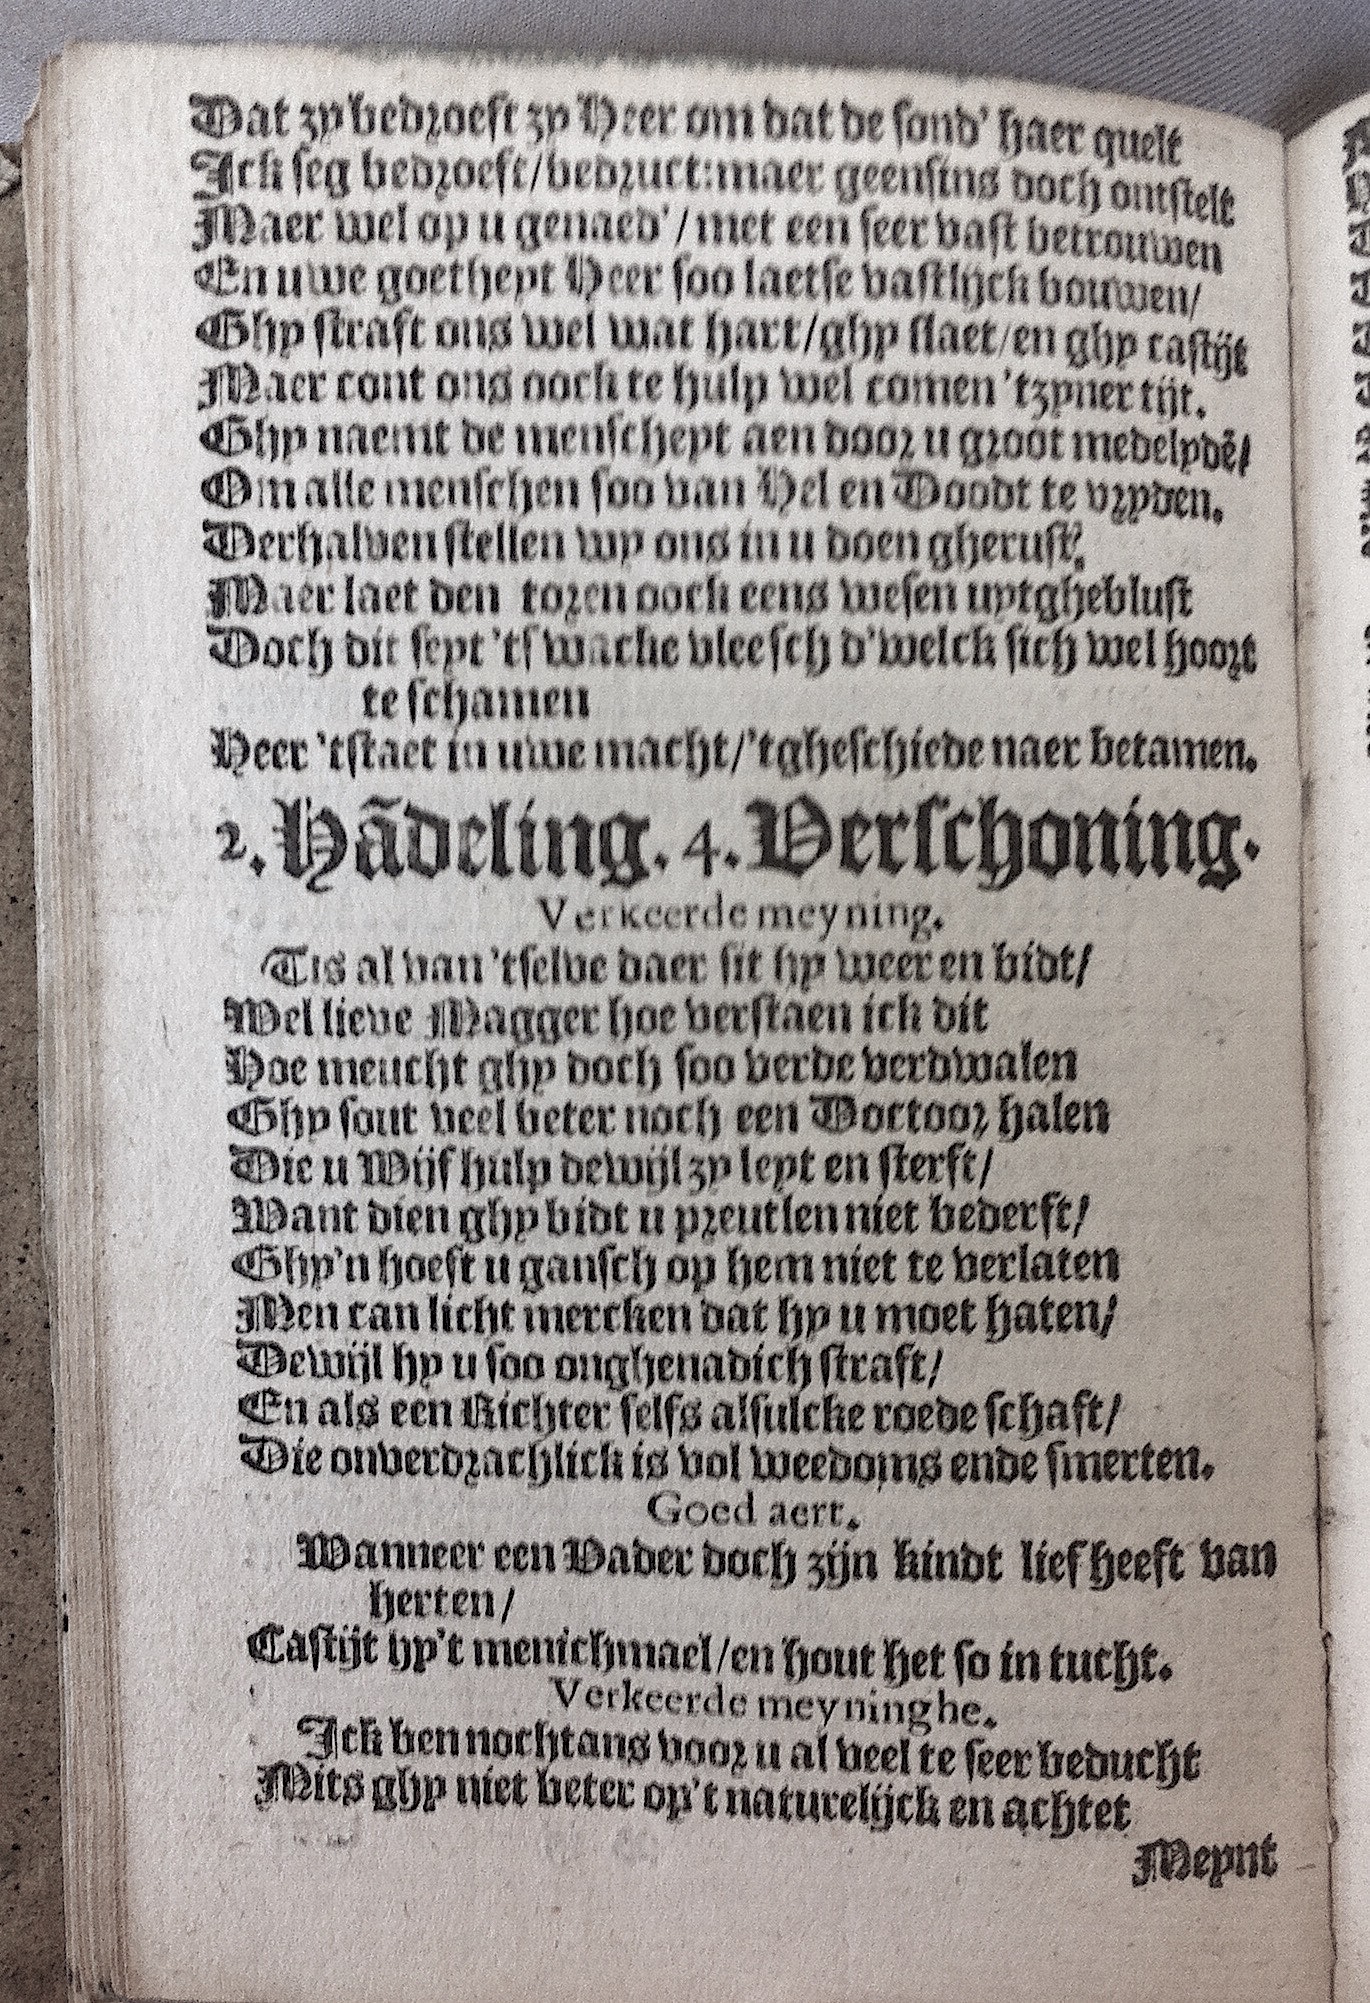 Dat zy bedroeft zy Heer om dat de sond' haer quelt
Ick seg bedroeft/bedruct: maer geensins doch ontstelt
Maer wel op u genaed'/met een seer vast betrouwen
En uwe goetheyt Heer soo laetse vastlijck bouwen/
Ghy straft ons wel wat hart/ghy slaet/en ghy castijt
Maer cont ons oock te hulp wel comen 'tzyner tijt.
Ghy naemt de menscheyt aen door u groot medelydē/
Om alle menschen soo van Hel en Doodt te vryden.
Derhalven stellen wy ons in u doen gherust?
Maer laet den toren oock eens wesen uytgheblust
Doch dit seyt 'tswacke vleesch d'welck sich wel hoort
te schamen
Heer 'tstaet in uwe macht/'tgheschiede naer betamen.
2. Hãdeling. 4. Verschoning.
Verkeerde meyning.
Tis al van 'tselve daer sit hy weer en bidt/
Wel lieve Magger hoe verstaen ick dit
Hoe meucht ghy doch soo verde verdwalen
Ghy sout veel beter noch een Doctoor halen
Die u Wijf hulp dewijl zy leyt en sterft/
Want dien ghy bidt u preutlen niet bederft/
Ghy'n hoeft u gansch op hem niet te verlaten
Men can licht mercken dat hy u moet haten/
Dewijl hy u soo onghenadich straft/
En als een Richter selfs alsulcke roede schaft/
Die onverdrachlick is vol weedoms ende smerten.
Goed aert.
Wanneer een Vader doch zijn kindt lief heeft van
herten/
Castijt hy't menichmael/en hout het so in tucht.
Verkeerde meyninghe.
Ick ben nochtans voor u al veel te seer beducht
Mits ghy niet beter op't naturelijck en achtet
Meynt